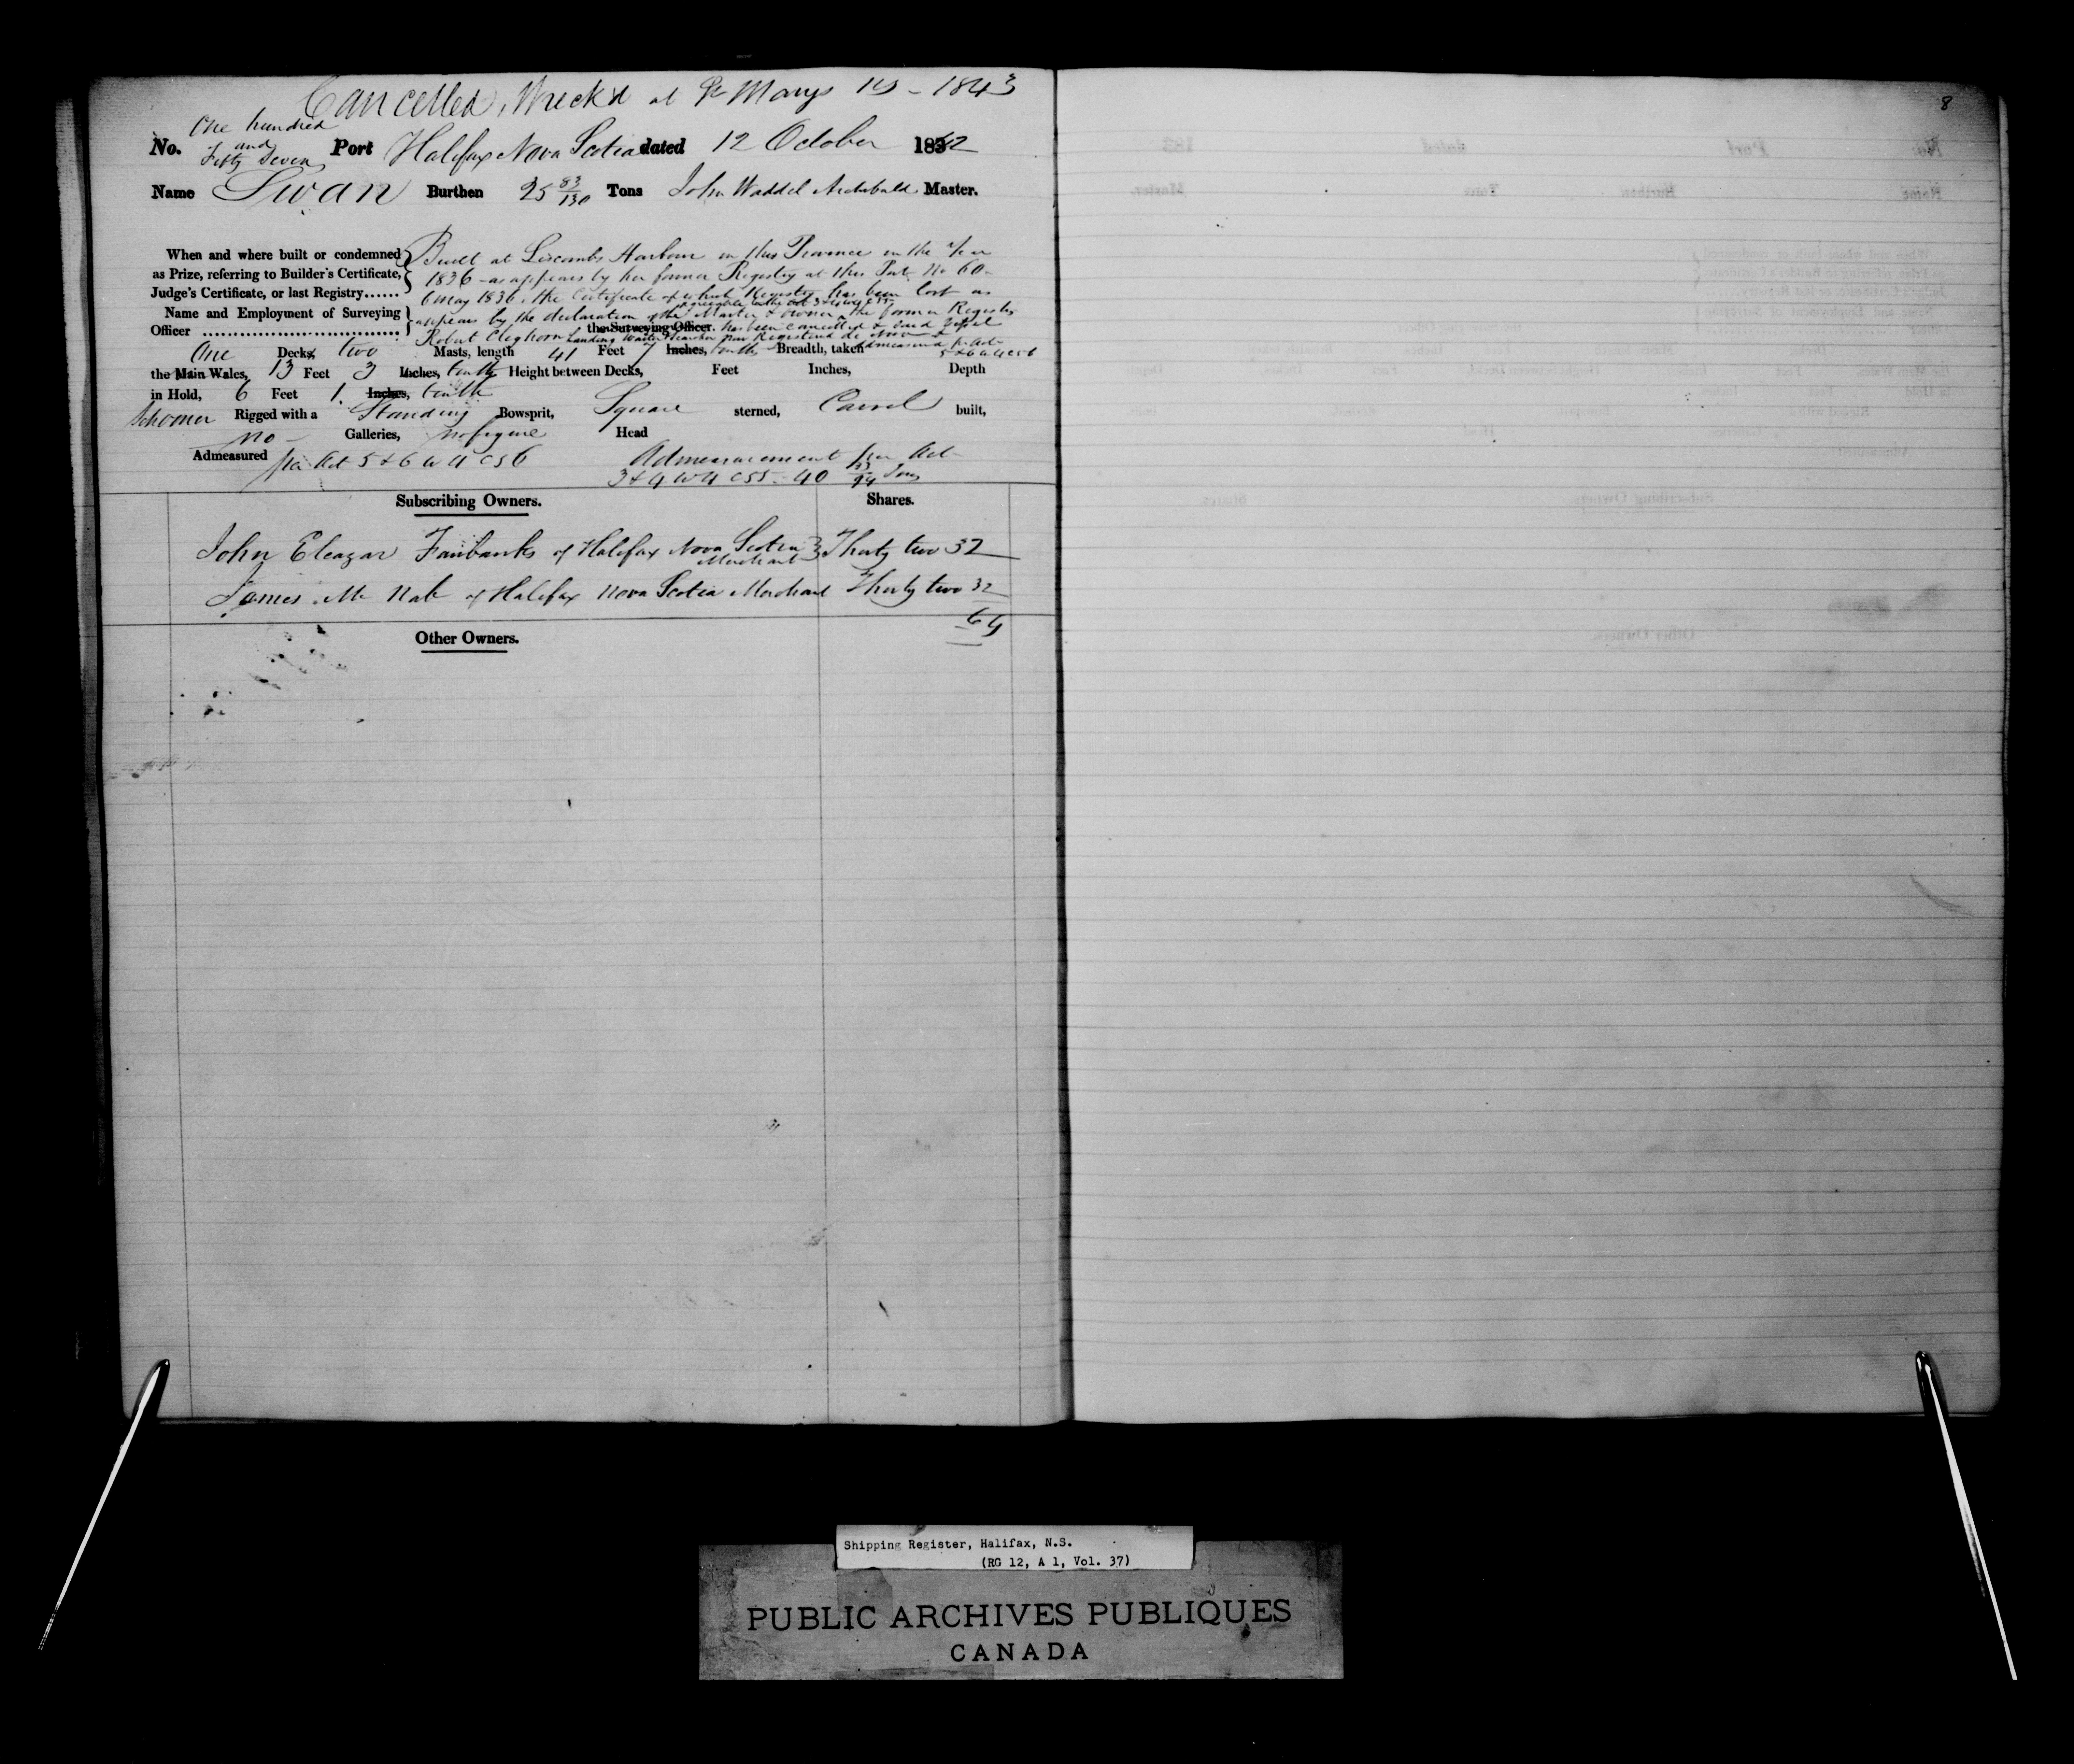 Cancelled, Wreck'd at St Marys NS - 1843
8
One hundred
No. and Fifty Seven Port Halifax Nova Scotia dated 12 October 1842
Name Swan Burthen 25 83/130 Tons John Waddel Archibald Master.
When and where built or condemned Built at Liscombs Harbour in this Province in the Year
as Prize, referring to Builder's Certificate, 1836 - as appears by her former Registry at this Port No 60 -
Judge's Certificate, or last Registry...... 6 May 1836, the Certificate of which Registry has been lost as
agreeable to the Act 3 & 4 W 4 C 55
Name and Employment of Surveying appears by the declaration of the Master & owner, the former Registry
the Surveying Officer. has been cancelled & said Vessel
Officer Robert Cleghorn Landing Waiter & Searcher now Registered de Novo & admeasured pr Act
5 & 6 W 4 C 56
One Decks, two Masts, length 41 Feet 7 Inches, tenths Breadth, taken
the Main Wales, 13 Feet 3 Inches, tenths Height between Decks, Feet Inches, Depth
in Hold, 6 Feet 1. Inches, tenth
Schooner Rigged with a Standing Bowsprit, Square sterned, Carvel built,
no Galleries, no figure Head
Admeasured per Act 5 & 6 W 4 C 56 Admeasurement per Act
3 & 4 W 4 C 55 - 40 33/94 Tons
Subscribing Owners. Shares.
John Eleazar Fairbanks of Halifax Nova Scotia Merchant Thirty two 32
James Mc Nab of Halifax Nova Scotia Merchant Thirty two 32
64
Other Owners.
Shipping Register, Halifax, N.S.
(RG 12, A 1, Vol. 37)
PUBLIC ARCHIVES PUBLIQUES
CANADA